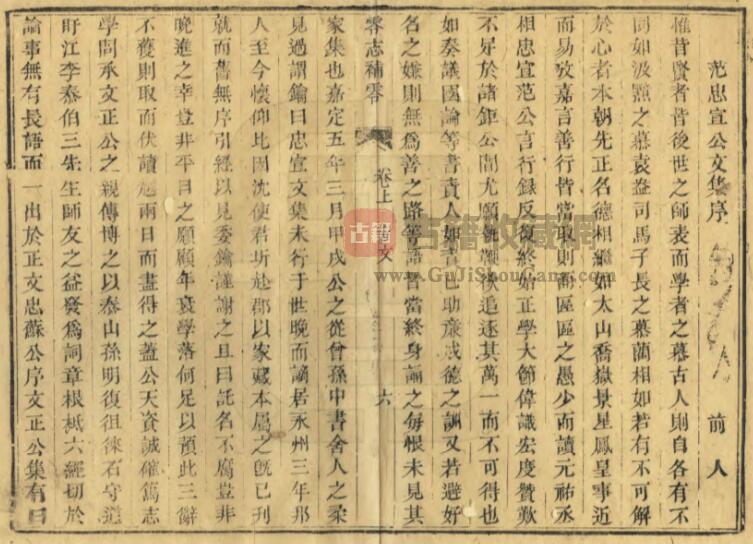 范忠宣公文集序 前人
惟昔賢者皆後世之師表而學者之慕古人則自各有不
同如汲黯之慕袁盎司馬子長之慕藺相如若有不可解
於心者本朝先正名德相繼如太山喬嶽景星鳳皇事近
而易攷嘉言善行皆當取則而區區之愚少而讀元祐丞
相忠宣范公言行録反復終始正學大節偉識宏度贊歎
不足於諸鉅公間尤願執鞭欲追逐其萬一而不可得也
如奏議國論等書責人如責己助廉成德之訓又若避好
名之嫌則無爲善之路等語皆當終身誦之每恨未見其
零志補零 卷上 文 六
家集也嘉定五年三月甲戌公之從曾孫中書舍人之柔
見過謂鑰曰忠宣文集未行于世晚而謫居永州三年邦
人至今懷仰比因沈使君圻赴郡以家藏本屬之旣已刊
就而舊無序引經以見委鑰謹謝之且曰託名不腐豈非
晚進之幸豈非平日之願顧年衰學落何足以預此三辭
不獲則取而伏讀越兩日而盡得之蓋公天資誠確篤志
學問承文正公之親傳博之以泰山孫明復徂徠石守道
盱江李泰伯三先生師友之益發爲詞章根柢六經切於
論事無有長語而一出於正文忠蘇公序文正公集有曰
古籍
古籍收藏网
www.GuJiShouCang.com